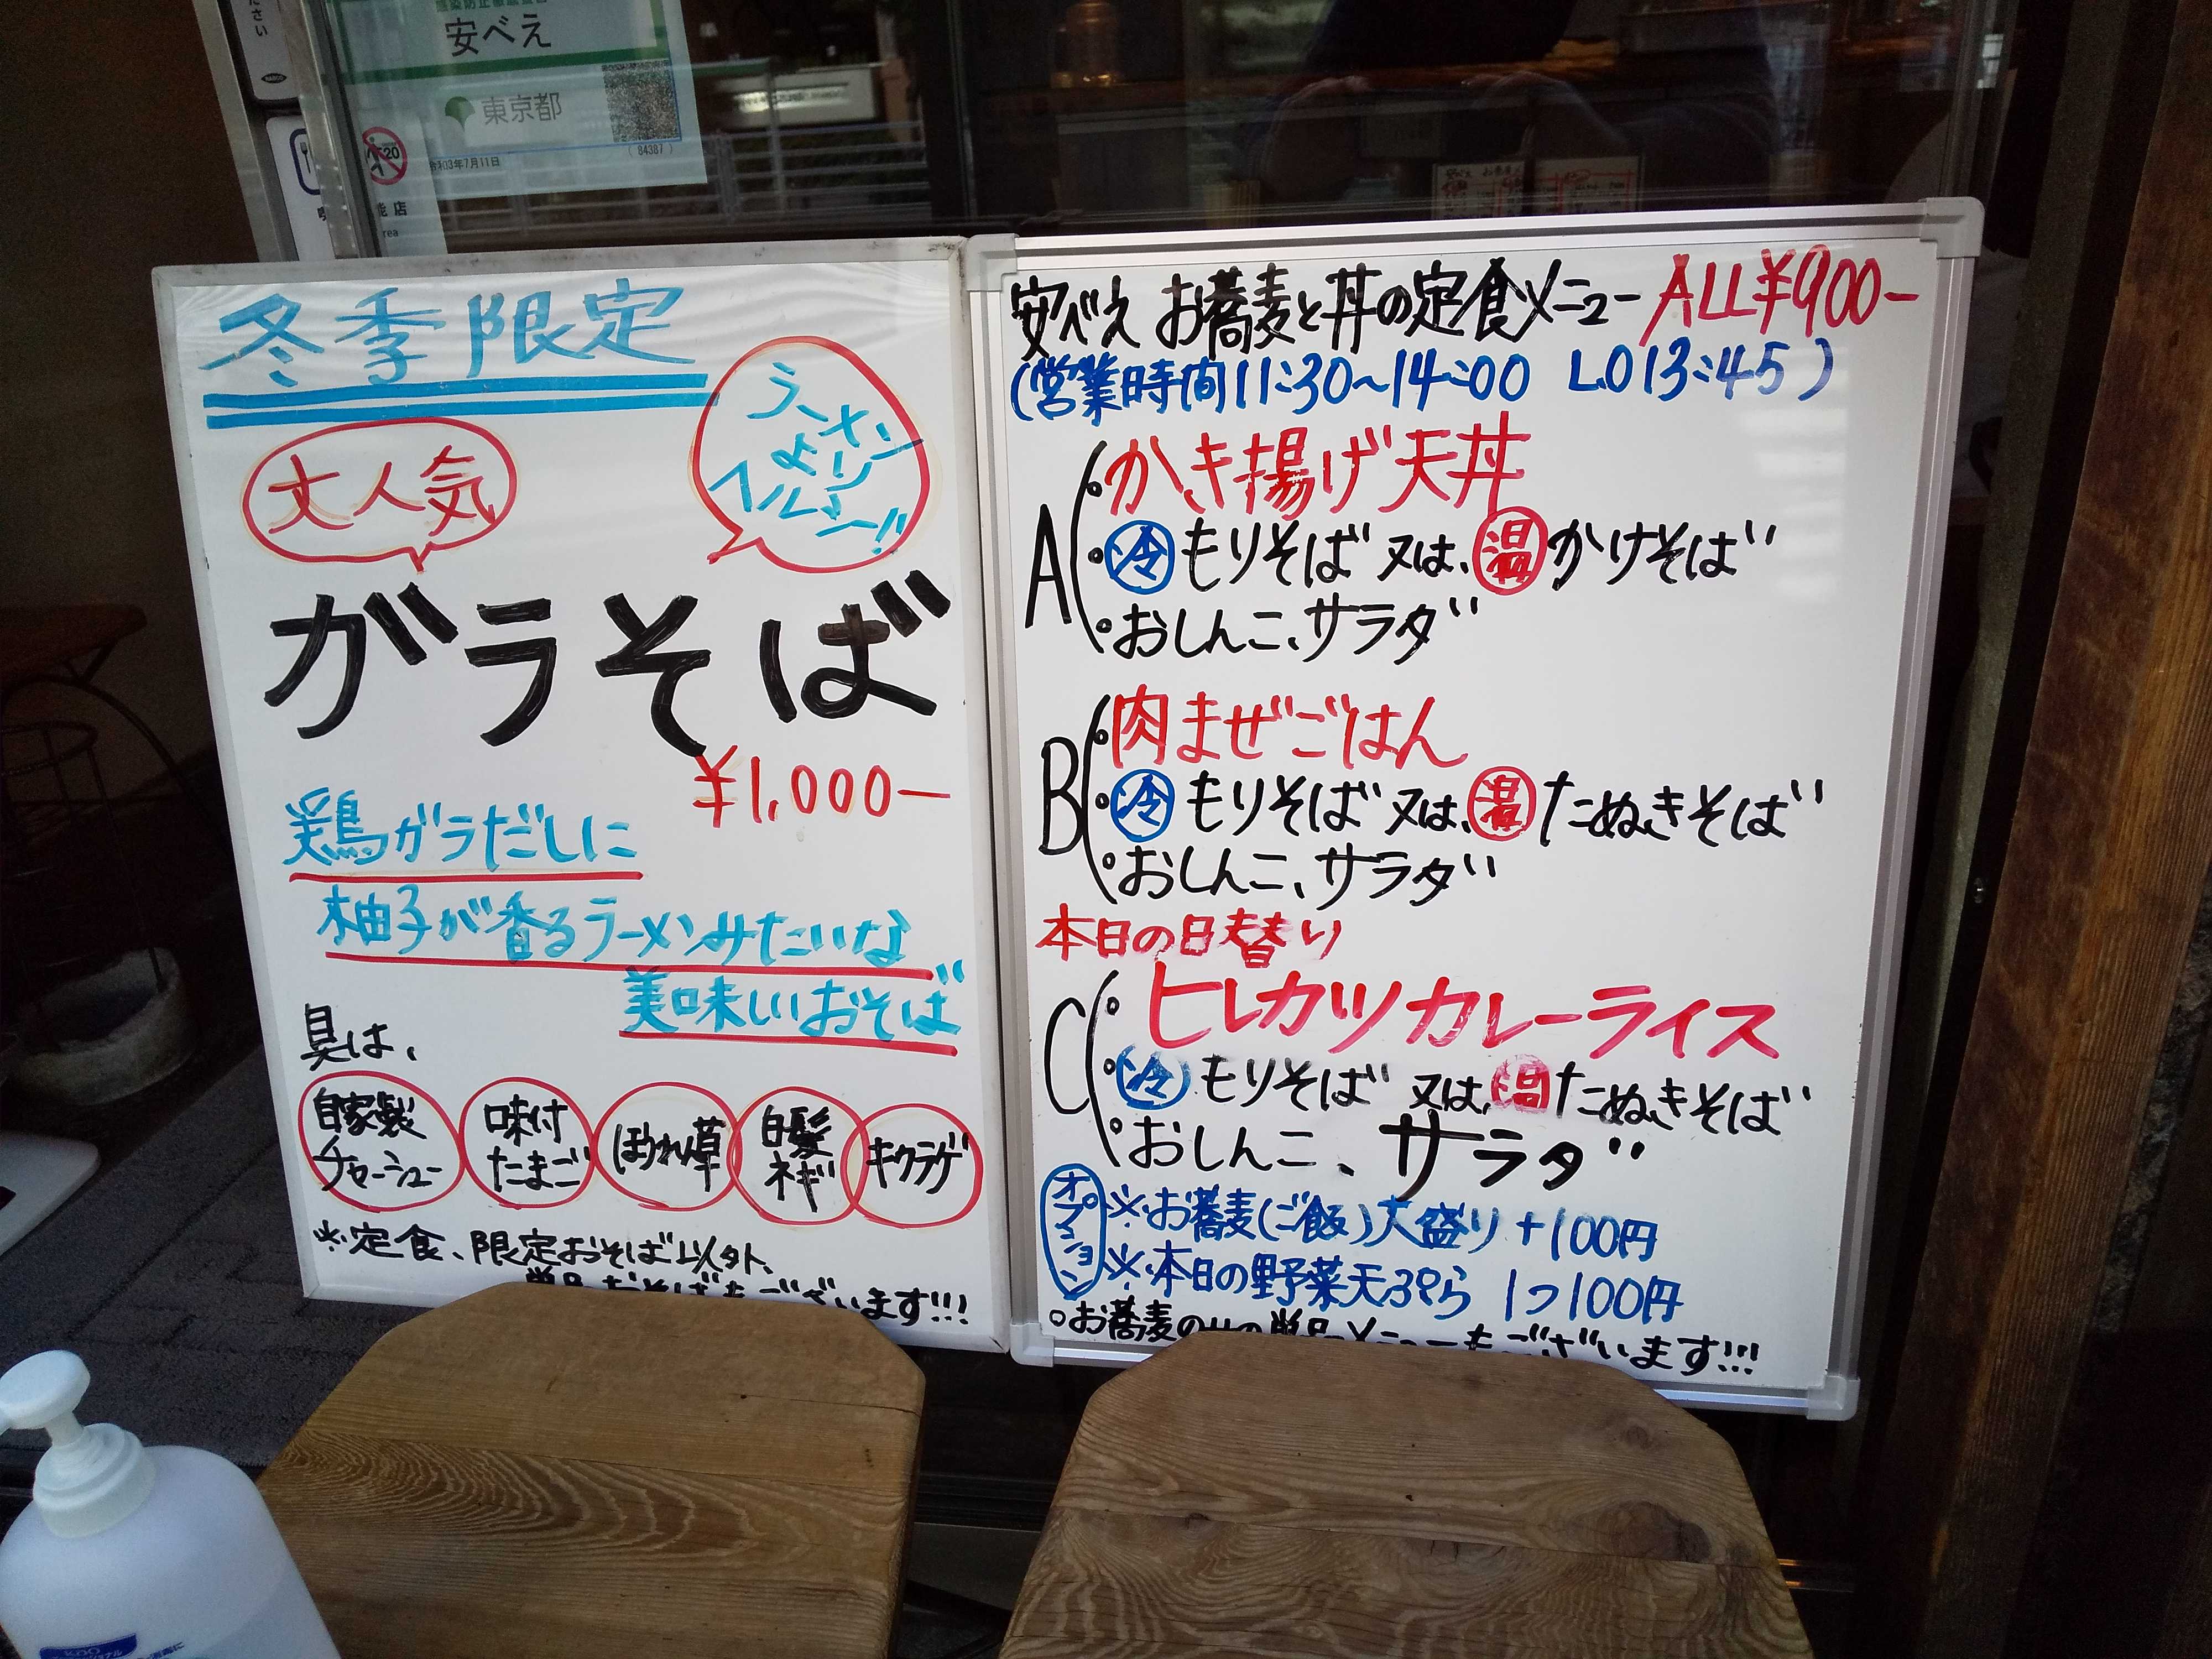 ださい
安べえ
東京都
(84387)
令和3年7月11日
能店
rea
冬季限定
大人気
ラーメンよりヘルシー!!
ガラそば
¥1,000-
鶏ガラだしに
柚子が香るラーメンみたいな
美味しいおそば
具は、
自家製チャーシュー
味付たまご
ほうれん草
白髪ネギ
キクラゲ
※定食、限定おそば以外、
単品おそばもございます!!!
安べえ お蕎麦と丼の定食メニュー ALL¥900-
(営業時間11:30~14:00 L.O13:45)
A
・かき揚げ天丼
・冷もりそば 又は、温かけそば
・おしんこ、サラダ
B
・肉まぜごはん
・冷もりそば 又は、温たぬきそば
・おしんこ、サラダ
本日の日替り
C
・ヒレカツカレーライス
・冷もりそば 又は、温たぬきそば
・おしんこ、サラダ
オプション
※お蕎麦(ご飯)大盛り+100円
※本日の野菜天ぷら 1つ100円
○お蕎麦のみの単品メニューもございます!!!